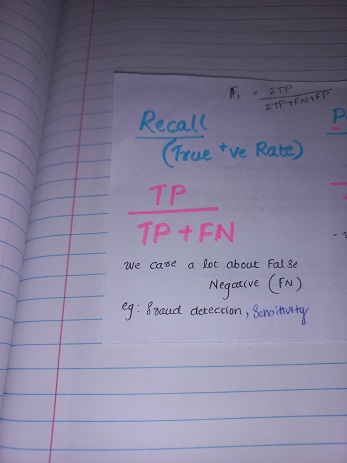 F1 = 2TP
2TP+FN+FP
Recall
(True +ve Rate)
TP
TP + FN
We care a lot about False
Negative (FN)
eg: Fraud detection, Sensitivity
P